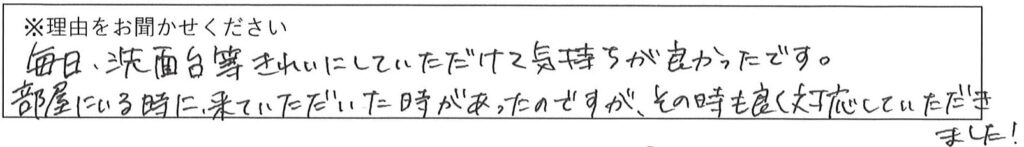 ※理由をお聞かせください
毎日、洗面台等きれいにしていただけて気持ちが良かったです。
部屋にいる時に、来ていただいた時があったのですが、その時も良く対応していただき
ました！